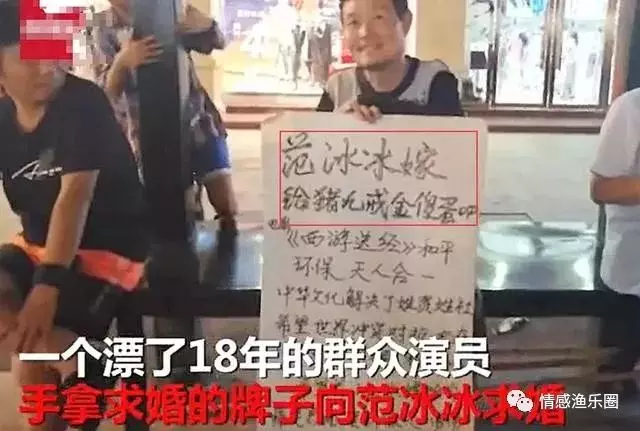 范冰冰嫁
给猪九戒金傻蛋吧
电影
《西游送经》和平
环保天人合一
中华文化解决了姓资姓社
希望世界
一个漂了18年的群众演员
手拿求婚的牌子向范冰冰求婚
情感渔乐圈